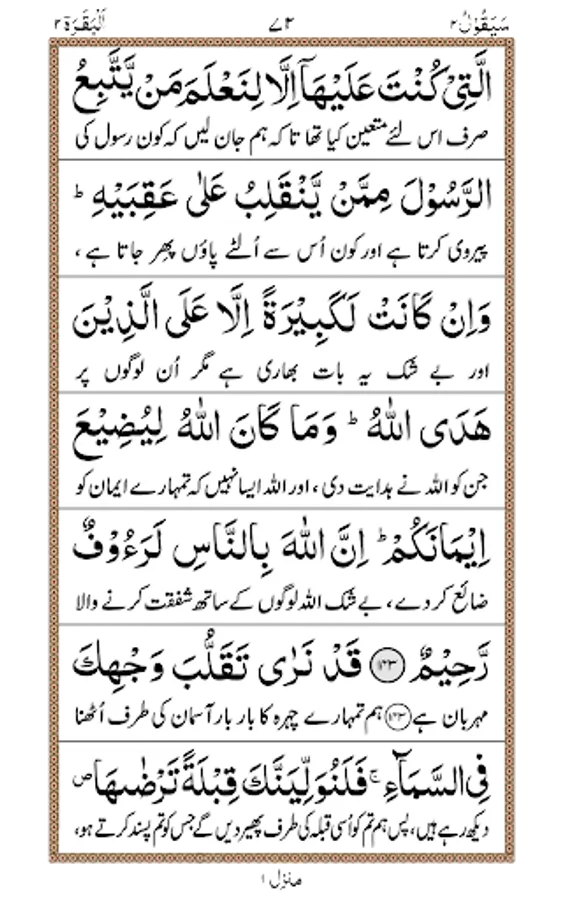 سَيَقُوْلُ ۲ ۷۲ اَلْبَقَرَة ۲
الَّتِیْ كُنْتَ عَلَیْهَاۤ اِلَّا لِنَعْلَمَ مَنْ یَّتَّبِعُ
صرف اس لئے متعین کیا تھا تا کہ ہم جان لیں کہ کون رسول کی
الرَّسُوْلَ مِمَّنْ یَّنْقَلِبُ عَلٰی عَقِبَیْهِ ؕ
پیروی کرتا ہے اور کون اُس سے اُلٹے پاؤں پھر جاتا ہے ،
وَاِنْ كَانَتْ لَكَبِیْرَةً اِلَّا عَلَی الَّذِیْنَ
اور بے شک یہ بات بھاری ہے مگر اُن لوگوں پر
هَدَی اللّٰهُ ؕ وَمَا كَانَ اللّٰهُ لِیُضِیْعَ
جن کو اللہ نے ہدایت دی ، اور اللہ ایسا نہیں کہ تمہارے ایمان کو
اِیْمَانَكُمْ ؕ اِنَّ اللّٰهَ بِالنَّاسِ لَرَءُوْفٌ
ضائع کر دے ، بے شک اللہ لوگوں کے ساتھ شفقت کرنے والا
رَّحِیْمٌ ﴿۱۴۳﴾ قَدْ نَرٰی تَقَلُّبَ وَجْهِكَ
مہربان ہے ﴿۱۴۳﴾ ہم تمہارے چہرہ کا بار بار آسمان کی طرف اُٹھنا
فِی السَّمَآءِ ۚ فَلَنُوَلِّیَنَّكَ قِبْلَةً تَرْضٰىهَا ۪
دیکھ رہے ہیں ، پس ہم تم کو اُسی قبلہ کی طرف پھیر دیں گے جس کو تم پسند کرتے ہو ،
منزل ۱